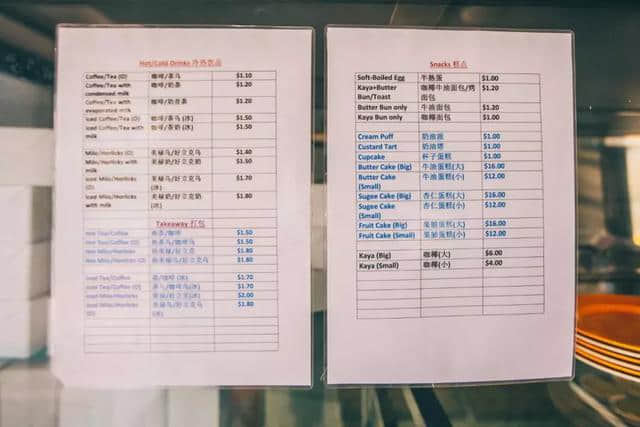 Hot/Cold Drinks 冷热饮品
Coffee/Tea (O) 咖啡/茶乌 $1.10
Coffee/Tea with condensed milk 咖啡/奶茶 $1.20
Coffee/Tea with evaporated milk 咖啡/奶茶 $1.20
Iced Coffee/Tea (O) 咖啡/茶乌(冰) $1.50
Iced Coffee/Tea with milk 咖啡/茶奶(冰) $1.50
Milo/Horlicks (O) 美禄乌/好立克乌 $1.40
Milo/Horlicks with milk 美禄奶/好立克奶 $1.50
Iced Milo/Horlicks (O) 美禄乌/好立克乌(冰) $1.70
Iced Milo/Horlicks with milk 美禄奶/好立克奶(冰) $1.80
Takeaway 打包
Hot Tea/Coffee 热茶/咖啡 $1.50
Hot Tea/Coffee (O) $1.50
Hot Milo/Horlicks $1.80
Hot Milo/Horlicks (O) $1.80
Iced Tea/Coffee 茶/咖啡(冰) $1.70
Iced Tea/Coffee (O) 茶乌/咖啡乌(冰) $1.70
Iced Milo/Horlicks $2.00
Iced Milo/Horlicks (O) 美禄乌/好立克乌(冰) $1.80
Snacks 糕点
Soft-Boiled Egg 半熟蛋 $1.00
Kaya+Butter Bun/Toast 咖椰牛油面包/烤面包 $1.20
Butter Bun only 牛油面包 $1.00
Kaya Bun only 咖椰面包 $1.00
Cream Puff 奶油派 $1.00
Custard Tart 奶油塔 $1.00
Cupcake 杯子蛋糕 $1.00
Butter Cake (Big) 牛油蛋糕(大) $16.00
Butter Cake (Small) 牛油蛋糕(小) $12.00
Sugee Cake (Big) 杏仁蛋糕(大) $16.00
Sugee Cake (Small) 杏仁蛋糕(小) $12.00
Fruit Cake (Big) 果脯蛋糕(大) $16.00
Fruit Cake (Small) 果脯蛋糕(小) $12.00
Kaya (Big) 咖椰(大) $6.00
Kaya (Small) 咖椰(小) $4.00